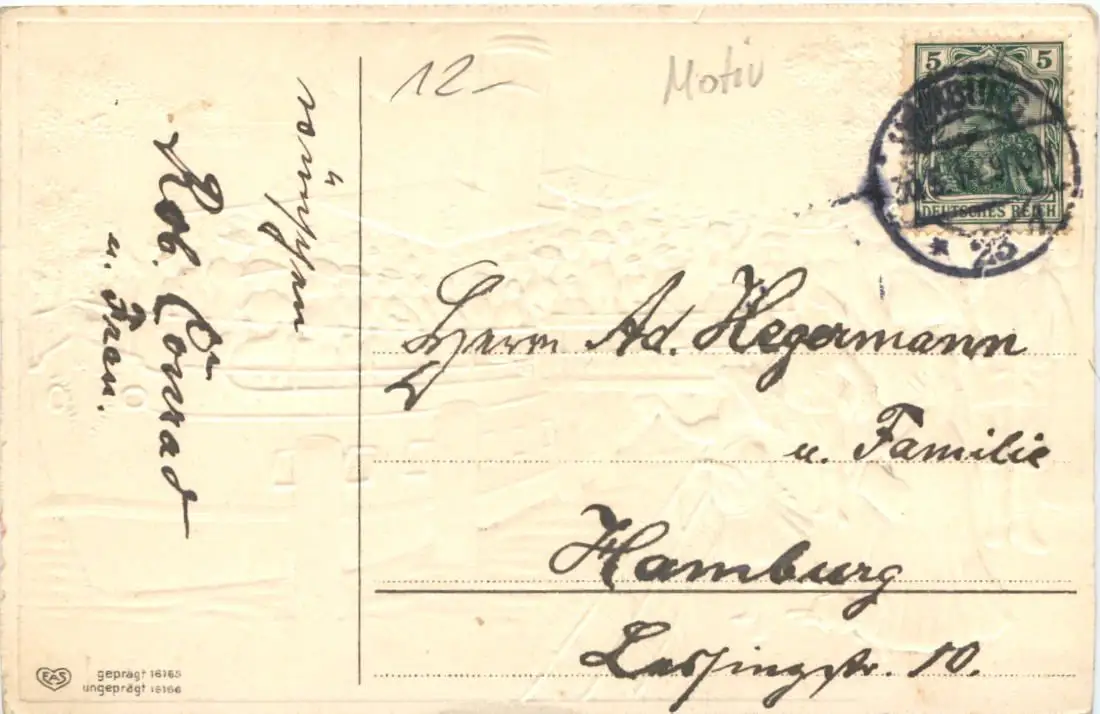 12-
Motiv
5 5
HAMBURG
DEUTSCHES REICH
* 25
wünschen
Rob. Conrad
u. Frau.
Herrn Ad. Hegermann
u. Familie
Hamburg
Lessingstr. 10.
EAS
geprägt 16165
ungeprägt 16166